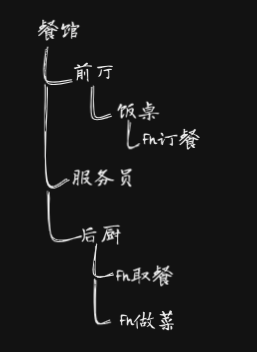 餐馆
前厅
饭桌
fn订餐
服务员
后厨
fn取餐
fn做菜